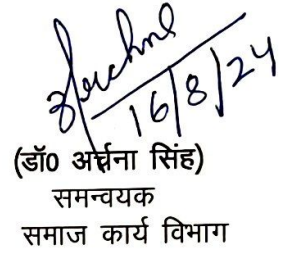 Archna
16/8/24
(डॉ0 अर्चना सिंह)
समन्वयक
समाज कार्य विभाग